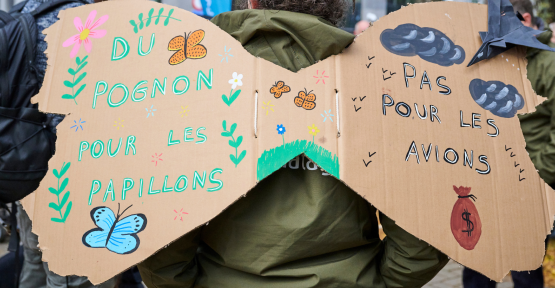 DU
POGNON
POUR LES
PAPILLONS
PAS
POUR LES
AVIONS
$